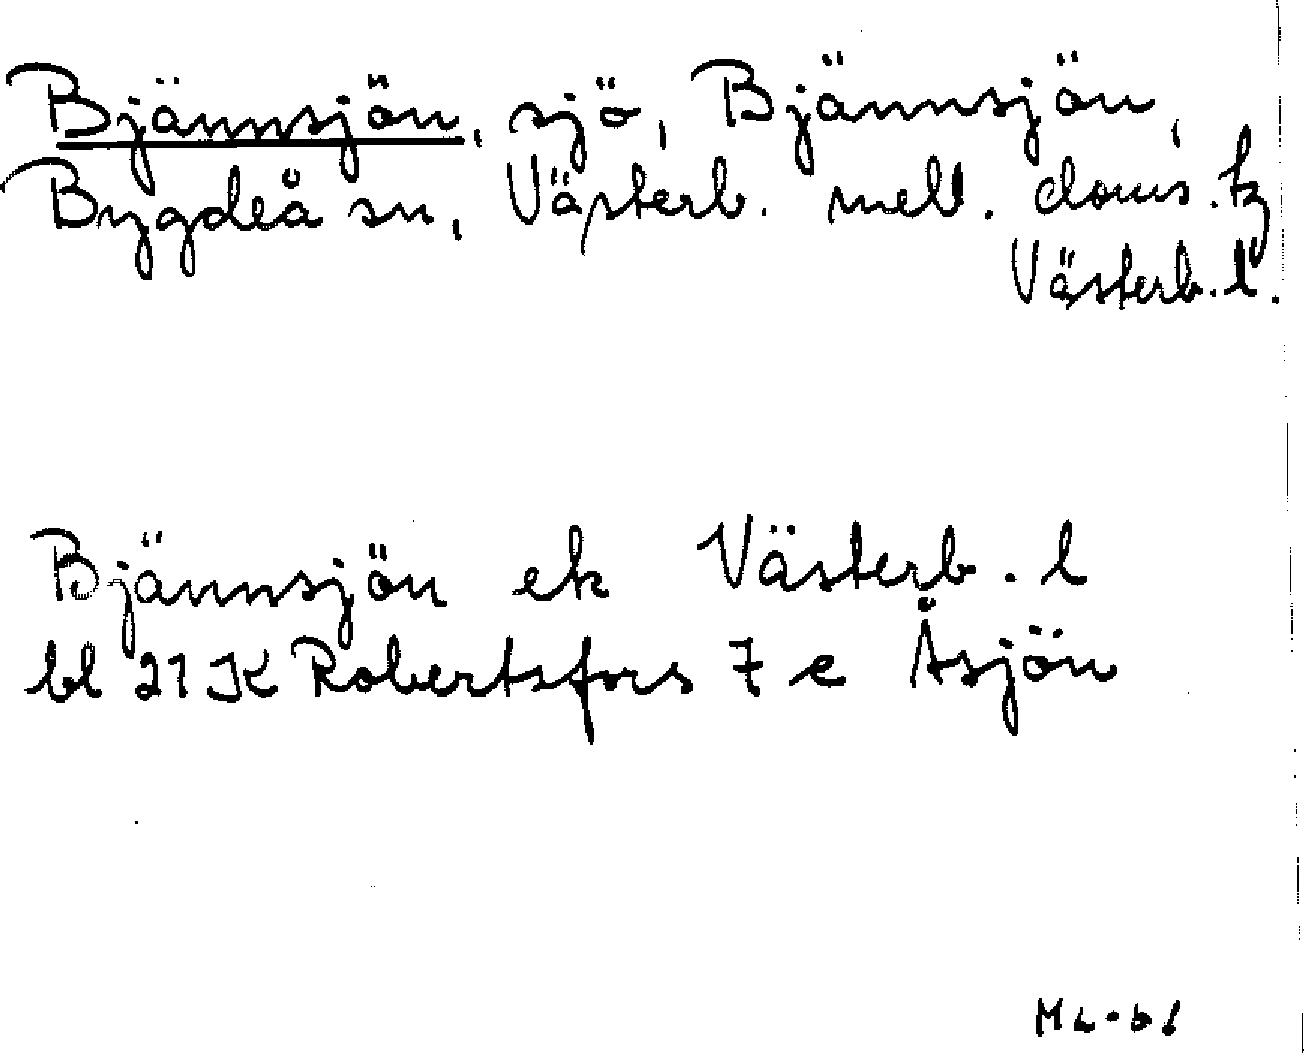 Bjännsjön, sjö, Bjännsjön,
Bygdeå sn, Västerb. mell. doms. tg
Västerb. l.
Bjännsjön ek Västerb. l
bl 21 K Robertsfors 7 e Åsjön